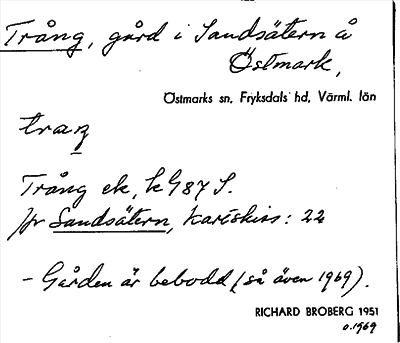 Trång, gård i Sandsätern å
Östmark,
Östmarks sn, Fryksdals hd, Värml. län
traŋ
Trång ek, k 987 S.
jfr Sandsätern, Kartskiss: 22
- Gården är bebodd (så även 1969).
RICHARD BROBERG 1951
o. 1969